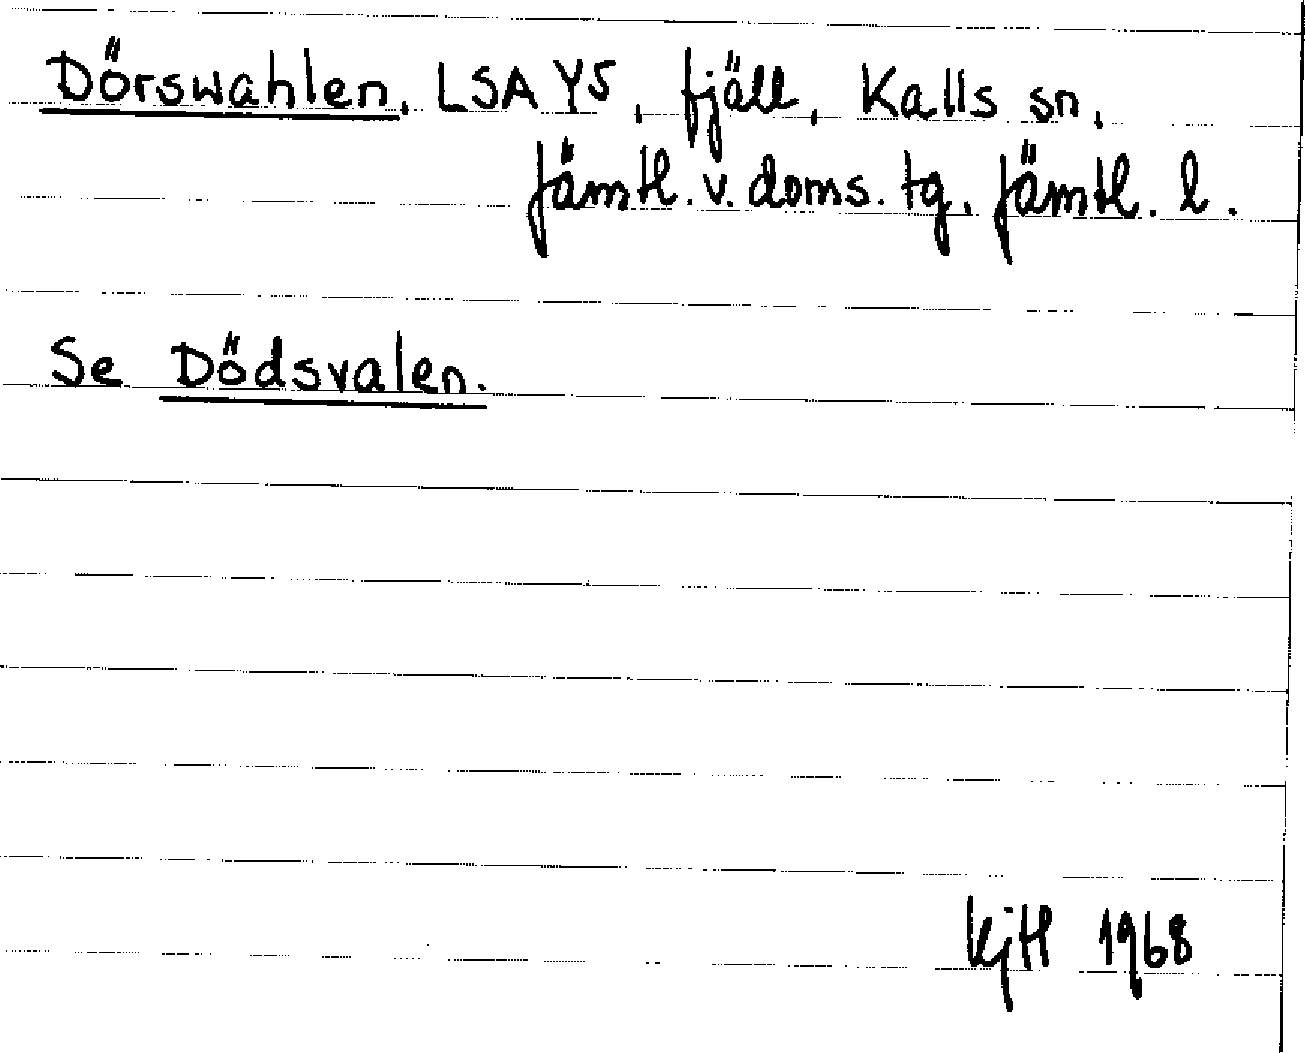 Dörswahlen, LSA Y5, fjäll, Kalls sn,
Jämtl. v. doms. tg, Jämtl. l.
Se Dödsvalen.
KjH 1968